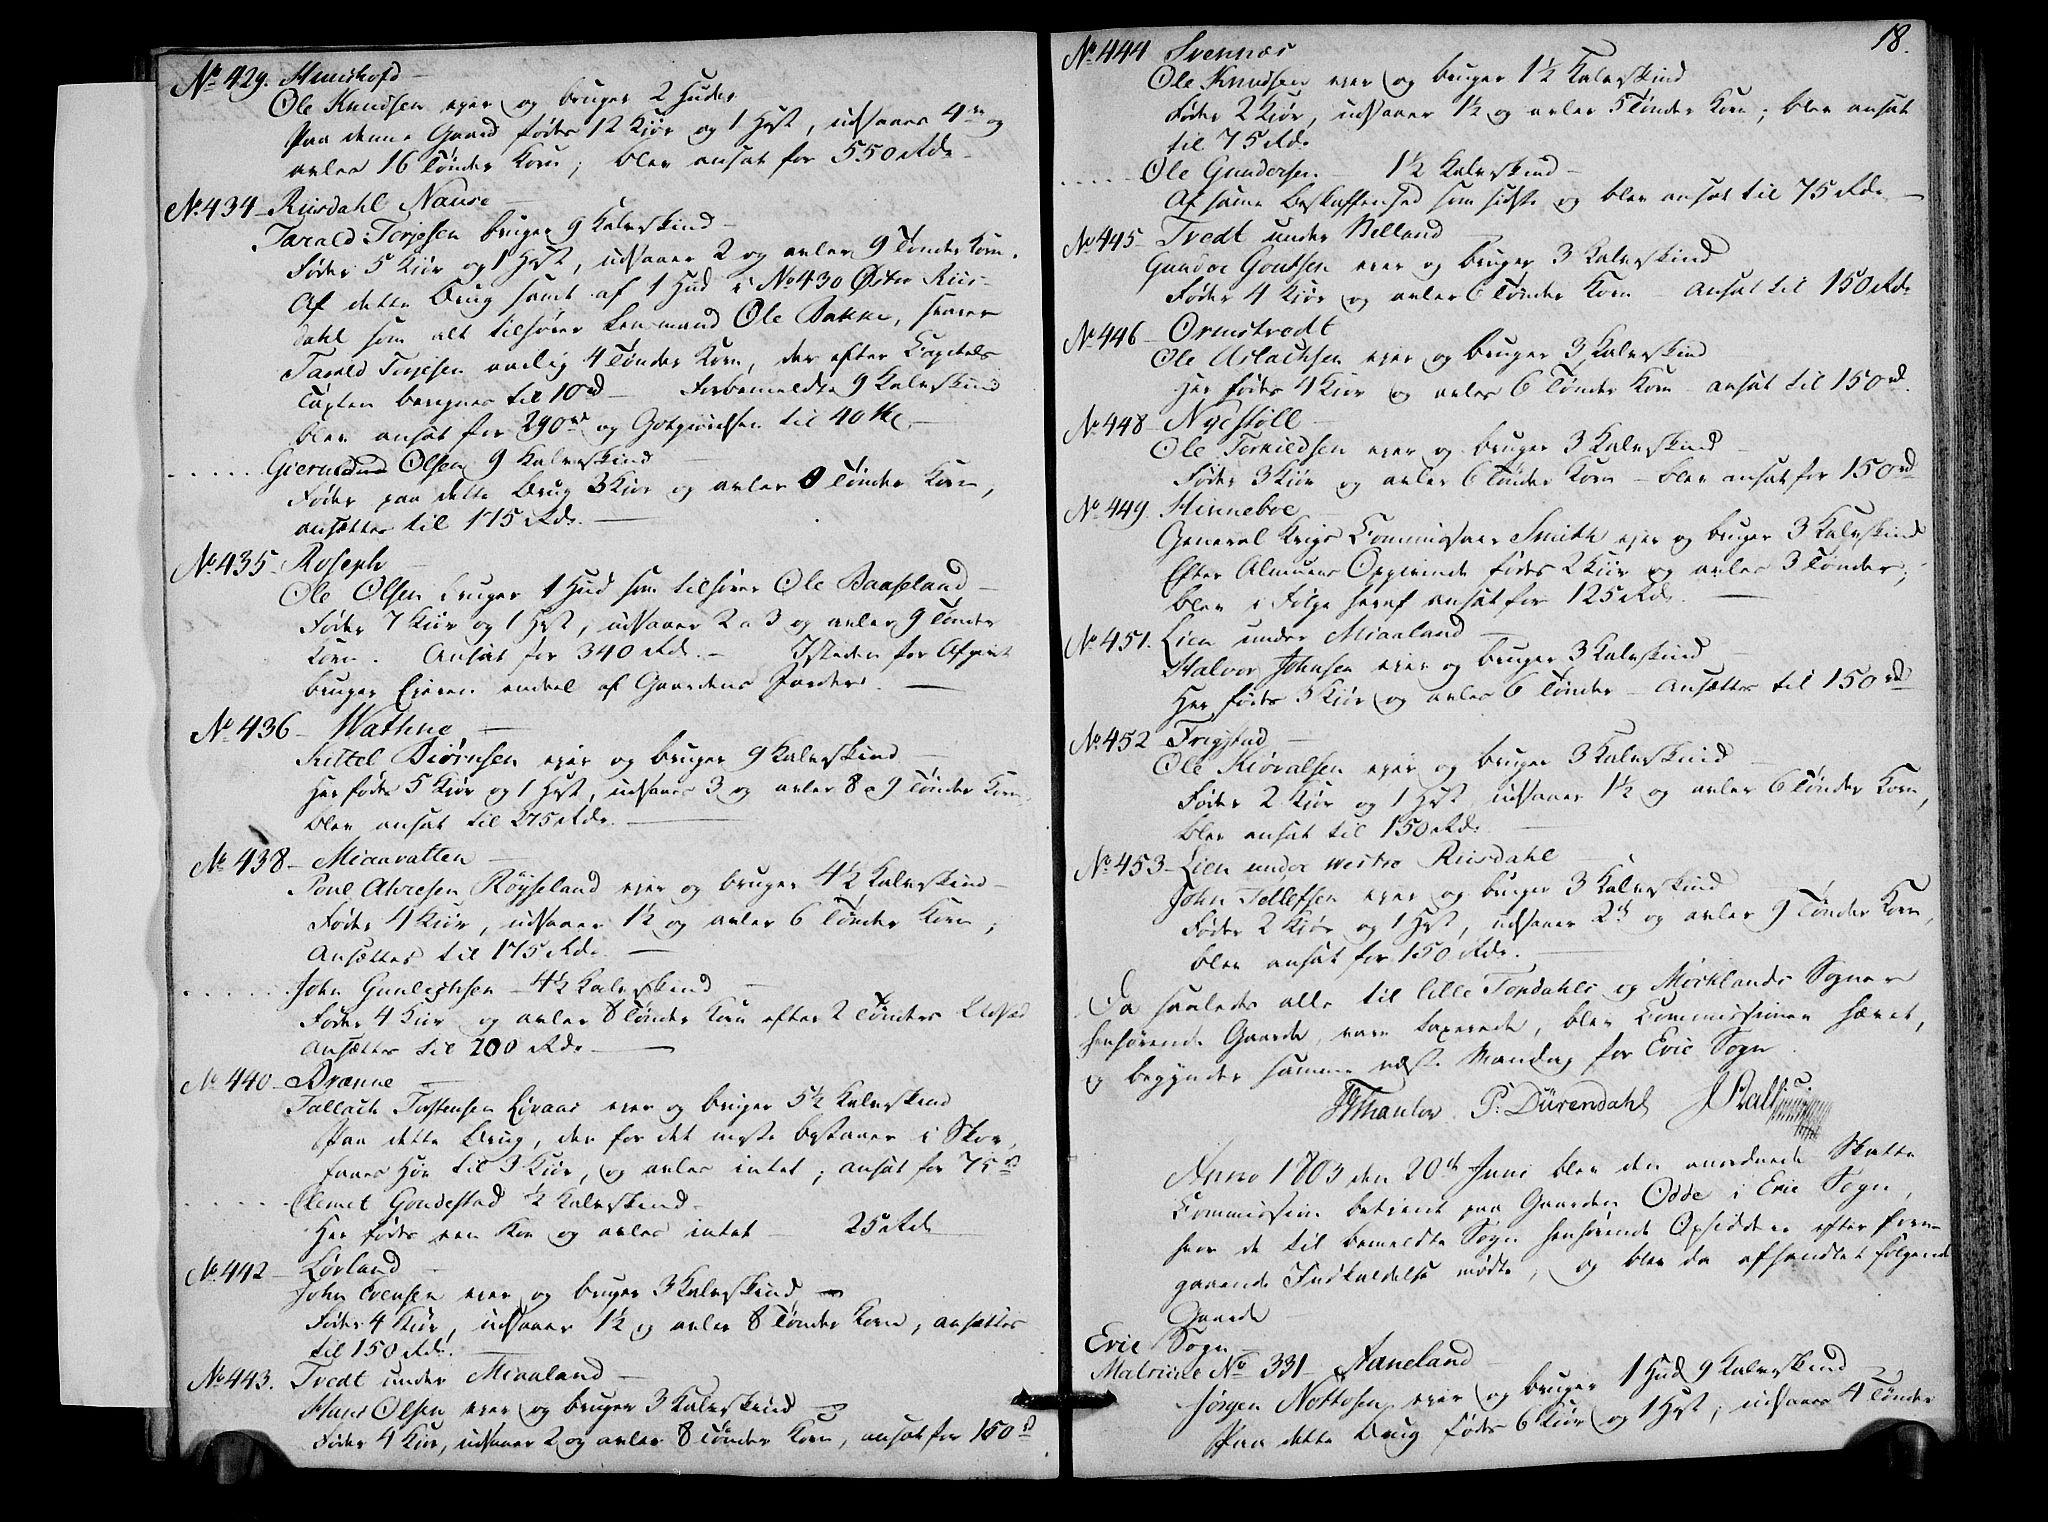 No 429. Hunshofd
Ole Knudsen ejer og bruger 2 Huder
Paa denne Gaard fødes 12 Kiør og 1 Hest, udsaaes 4re og
avles 16 Tønder Korn; blev ansat for 550 Rdr
No 434 Riisdahl Nause
Tarald Terjesen bruger 9 Kalvskind
Føder 5 Kiør og 1 Hest, udsaaer 2 og avler 9 Tønder Korn.
Af dette Brug samt af 1 Hud i No 430 Østre Riis-
dahl som alt tilhører Lensmand Ole Bakke, svarer
Tarald Terjesen aarlig 4 Tønder Korn, der efter Capitels
Taxten beregnes til 10 rd Forbemeldte 9 Kalvskind
blev ansat for 290 rd og til 40 rd
Olsen 9 Kalvskind
Føder paa dette Brug 3 Kiør og avler 8 Tønder Korn,
ansættes til 175 Rdr.
No 435 Roseph
Ole Olsen bruger 1 Hud som tilhører Ole Baaseland
Føder 7 Kiør og 1 Hest, udsaaer 2 a 3 og avler 9 Tønder
Korn. Ansat for 340 Rdr. Isteden for Afgivt
bruger Ejeren endeel af Gaardens Jorder.
No 436 Wathne
Kittel Biørnsen ejer og bruger 9 Kalvskind
Her fødes 5 Kiør og 1 Hest, udsaaes 3 og avles 8 a 9 Tønder Korn,
blev ansat til 275 Rdr.
No 438 Mioavatten
Poul Ahresen Röyseland ejer og bruger 4½ Kalvskind
Føder 4 Kiør, udsaaer 1½ og avler 6 Tønder Korn;
Ansættes til 175 Rdr.
John Gunleychsen 4½ Kalvskind
Føder 4 Kiør og avler 8 Tønder Korn efter 2 Tønders Udsæd
Ansættes til 200 Rdr.
No 440 Brænne
Tallach Torstensen Livaas ejer og bruger 5½ Kalvskind
Paa dette Brug, der for det meste bestaaer i Skov,
faaes Høe til 3 Kiør, og avles intet; ansat for 75 rd
Clemet Gondestad ½ Kalvskind
Her fødes een Koe og avles intet 25 Rdr
No 442 Lovland
John Evensen ejer og bruger 3 Kalvskind
Føder 4 Kiør, udsaaer 1½ og avler 8 Tønder Korn, ansættes
til 150 Rdr.
No 443. Tvedt under Mioaland
Hans Olsen ejer og bruger 3 Kalvskind
Føder 4 Kiør, udsaaer 2 og avler 8 Tønder Korn, ansat for 150 rd
18.
No 444 Svennæs
Ole Knudsen ejer og bruger 1½ Kalvskind
Føder 2 Kiør, udsaaer 1½ og avler 5 Tønder Korn; blev ansat
til 75 Rdr
Ole Gundersen 1½ Kalvskind
Af samme Beskaffenhed som sidste og blev ansat til 75 Rdr.
No 445 Tvedt under Belland
Gunder Goutsen ejer og bruger 3 Kalvskind
Føder 4 Kiør og avler 6 Tønder Korn Ansat til 150 Rdr
No 446 Ormstvedt
Ole Aslachsen ejer og bruger 3 Kalvskind
Her fødes 4 Kiør og avles 6 Tønder Korn ansat til 150 rd.
No 448 Nyestöll
Ole Torkildsen ejer og bruger 3 Kalvskind
Føder 3 Kiør og avler 6 Tønder Korn blev ansat for 150 rd
No 449 Hinneboe
General Krigs Commissaer Smith ejer og bruger 3 Kalvskind
Efter Almuens Opgivende fødes 2 Kiør og avles 3 Tønder;
blev i Følge heraf ansat for 125 Rdr.
No 451. Lien under Mioaland
Halvor Johnsen ejer og bruger 3 Kalvskind
Her fødes 3 Kiør og avles 6 Tønder Ansættes til 150 rd
No 452 Frigstad
Ole Kiøvalsen ejer og bruger 3 Kalvskind
Føder 2 Kiør og 1 Hest, udsaaer 1½ og avler 6 Tønder Korn,
blev ansat til 150 Rdr.
No 453 Lien under westre Riisdahl
John Tellefsen ejer og bruger 3 Kalvskind
Føder 2 Kiør og 1 Hest, udsaaer 2 og avler 9 Tønder Korn,
blev ansat for 150 Rdr.
Da saaledes alle til lille Topdahls og Mörklands Sogner
henhørende Gaarde, vare taxerede, blev Commissionen hævet,
og begynder samme næste Mandag for Evie Sogn.
Thaulow P: Dürendahl
Anno 1803 den 20de Juni blev den anordnede Skatte
Commission betient paa Gaarden Odde i Evie Sogn,
hvor de til bemeldte Sogn henhørende Opsiddere efter foren
gaaende Indkaldelse mødte, og blev da afhandlet følgende
Gaarde
Evie Sogn
Matricul No 331 Aaneland
Jørgen Nottosen ejer og bruger 1 Hud 9 Kalvskind
Paa dette Brug fødes 6 Kiør og 1 Hest, udsaaes 4 Tønder